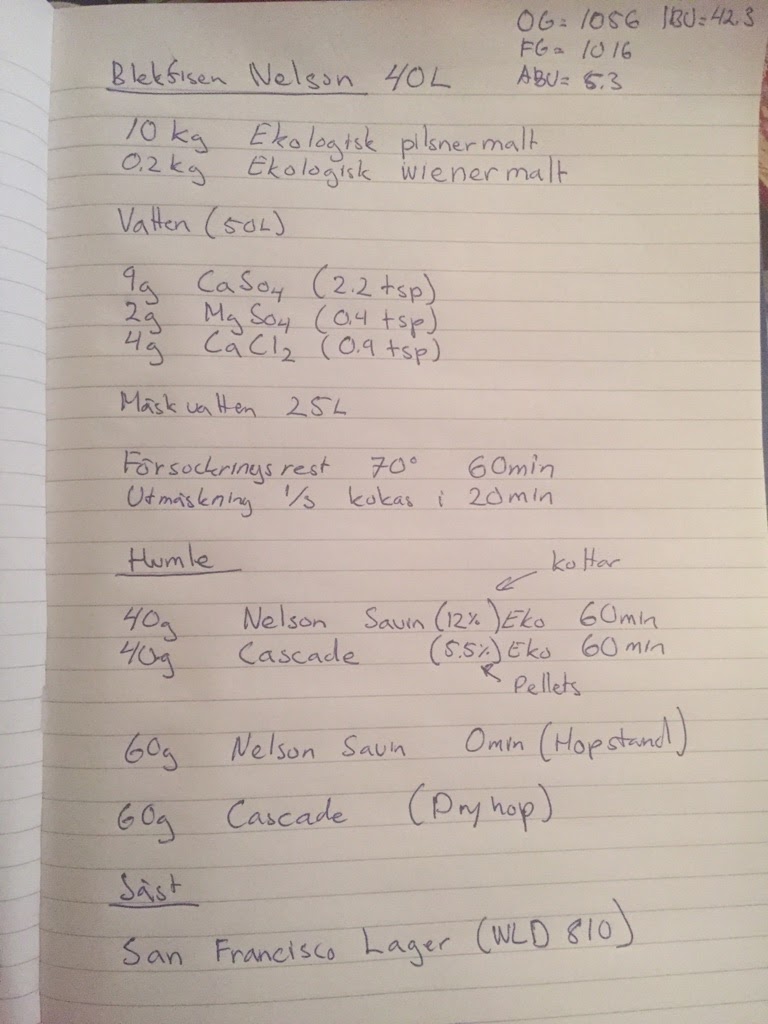 OG = 1056 IBU = 42.3
FG = 1016
ABU = 5.3
Blekfisen Nelson 40L
10 kg Ekologisk pilsnermalt
0.2 kg Ekologisk wienermalt
Vatten (50L)
9g CaSO4 (2.2 tsp)
2g MgSO4 (0.4 tsp)
4g CaCl2 (0.9 tsp)
Mäskvatten 25L
Försockringsrest 70° 60min
Utmäskning 1/3 kokas i 20min
Humle
kottar
40g Nelson Sauvin (12%) Eko 60min
40g Cascade (5.5%) Eko 60min
Pellets
60g Nelson Sauvin 0min (Hopstand)
60g Cascade (Dryhop)
Jäst
San Francisco Lager (WLD 810)